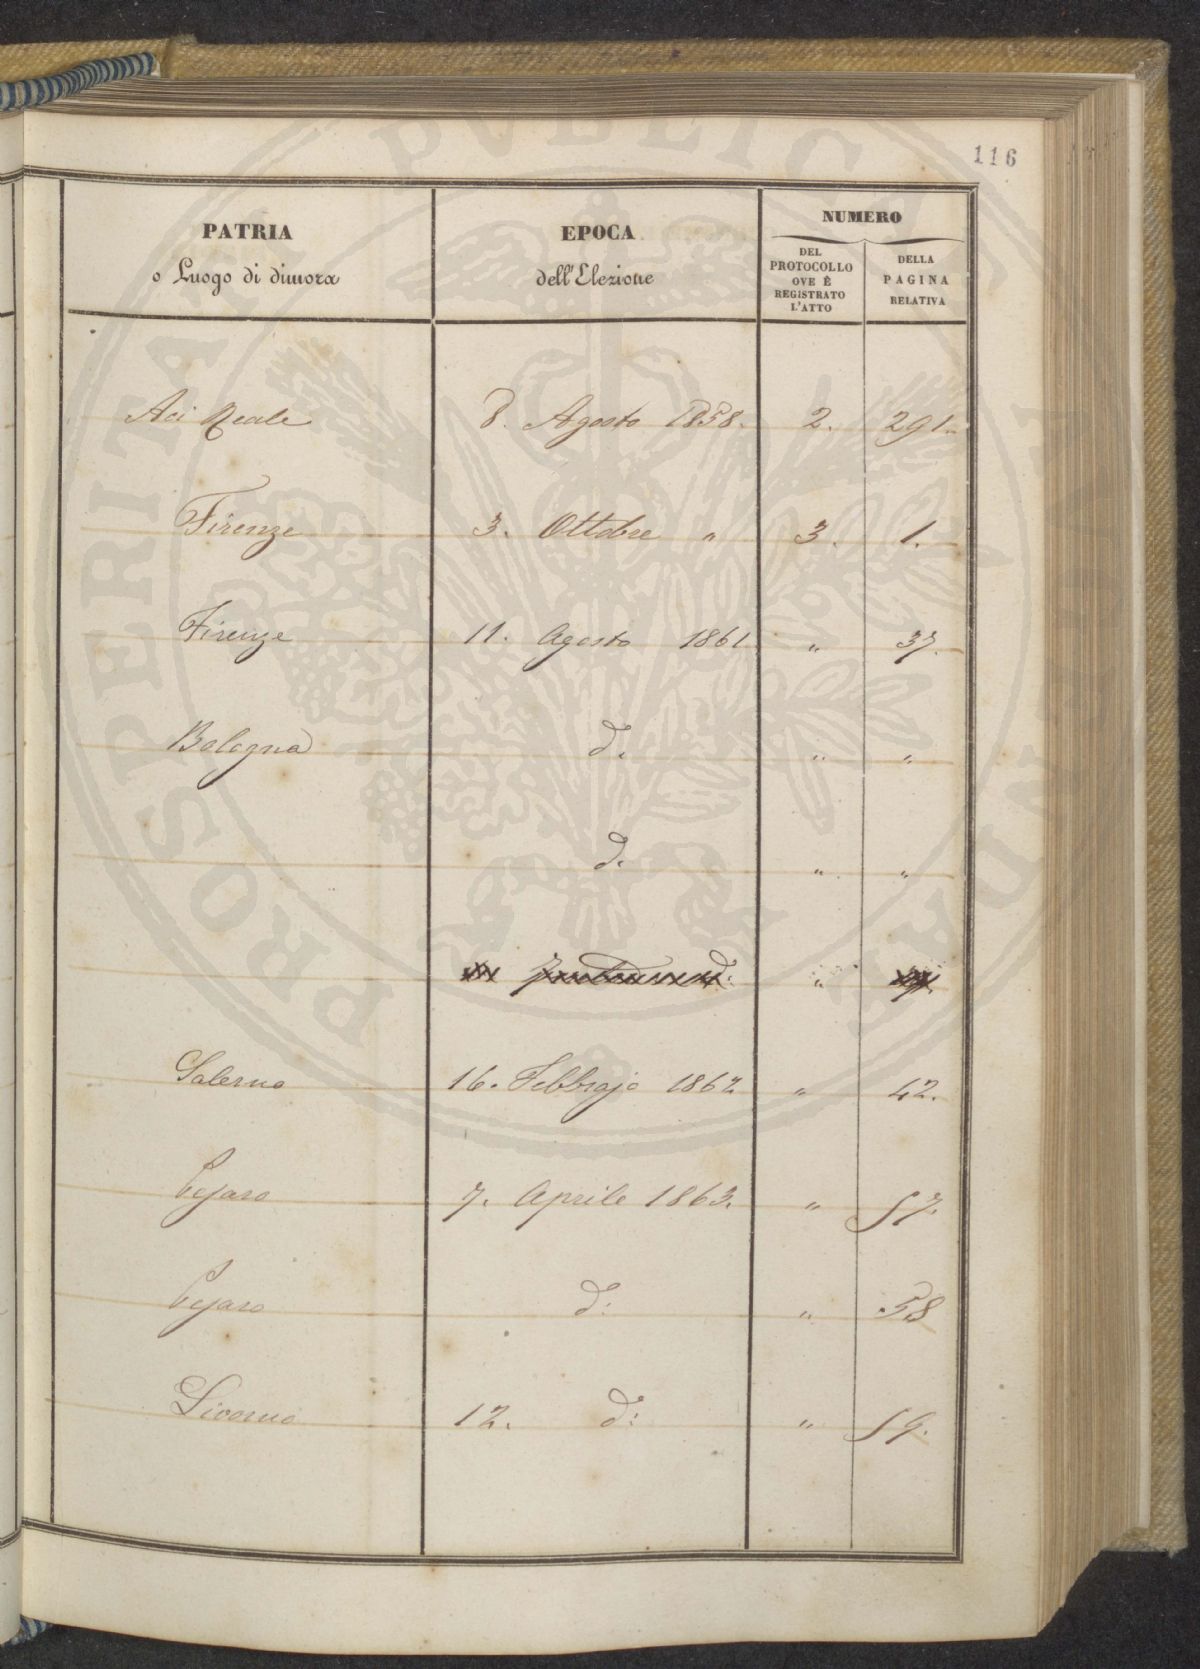 116
PATRIA
o Luogo di dimora
EPOCA
dell'Elezione
NUMERO
DEL
PROTOCOLLO
OVE È
REGISTRATO
L'ATTO
DELLA
PAGINA
RELATIVA
Aci Reale 8. Agosto 1858. 2. 291.
Firenze 3. Ottobre " 3. 1.
Firenze 11. Agosto 1861 " 37.
Bologna d. " "
d. " "
d: "
Salerno 16. Febbrajo 1862 " 42.
Pesaro 7. Aprile 1863. " 57.
Pesaro d: " 58
Livorno 12. d: " 59.
PROSPERITAS PVBLICA